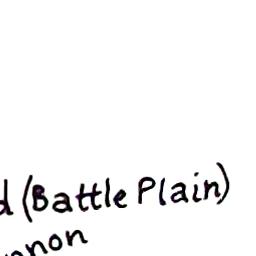 d (Battle Plain)
nnon